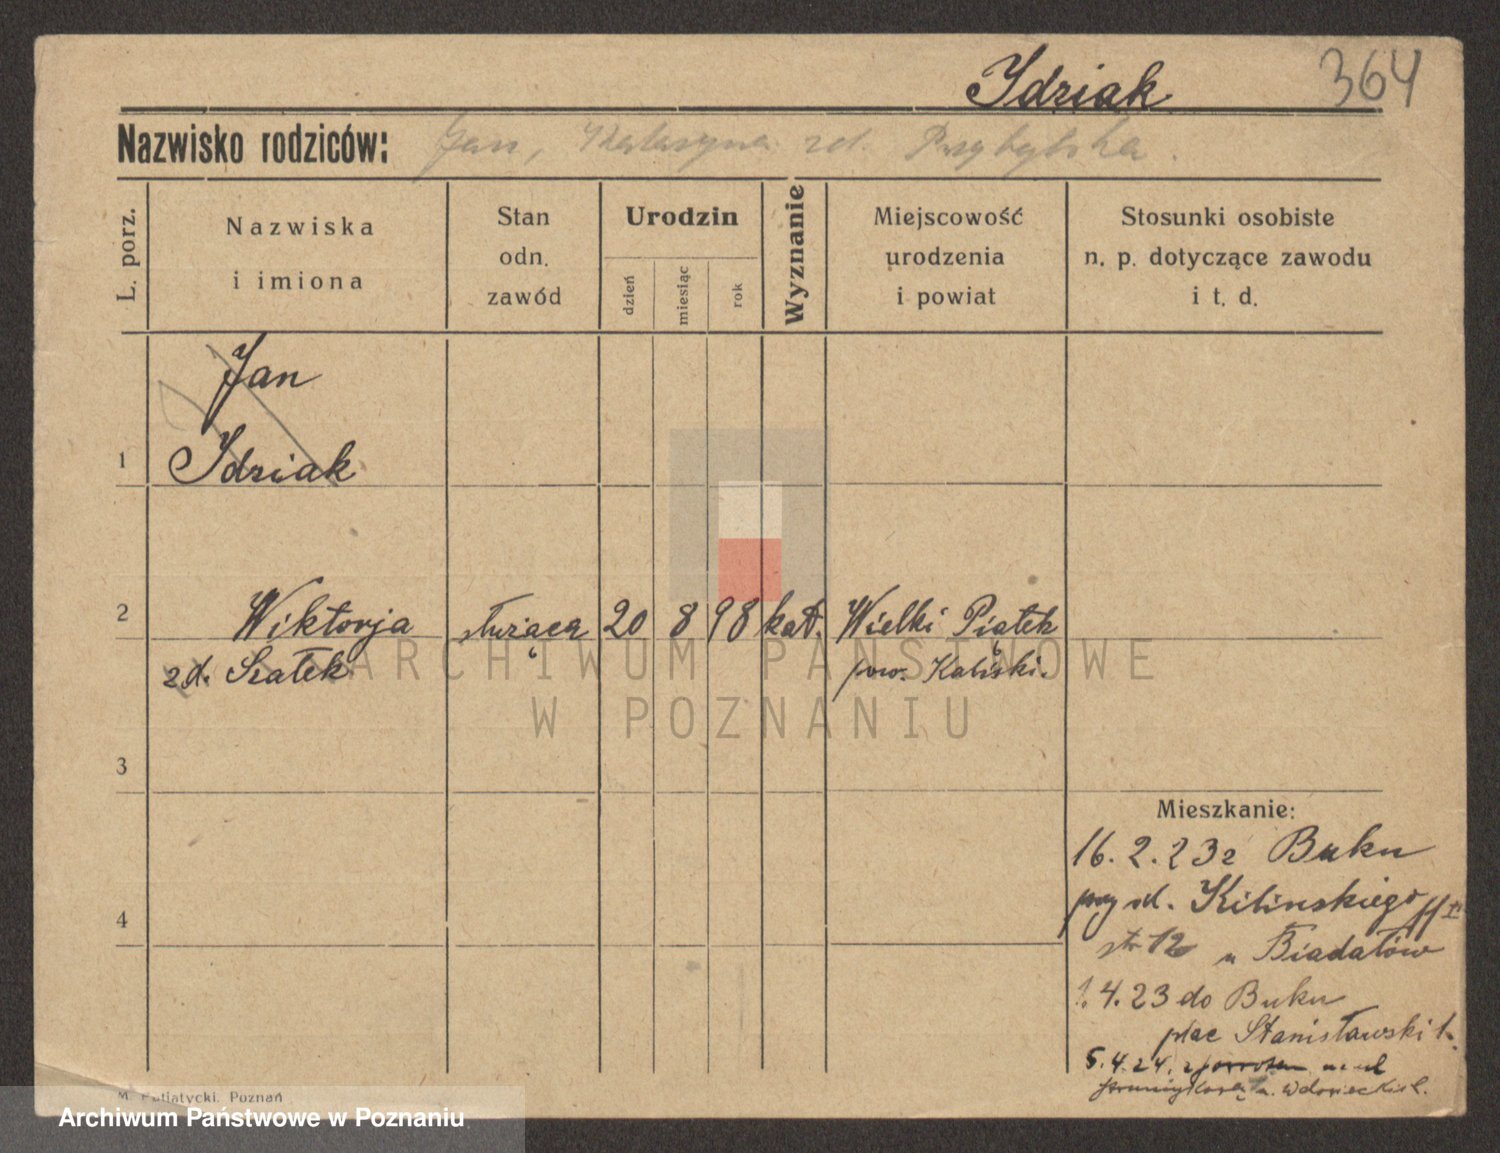 Idziak 364
Nazwisko rodziców: Jan, Katarzyna zd. Przybylska.
L. porz.
Nazwiska
i imiona
Stan
odn.
zawód
Urodzin
dzień
miesiąc
rok
Wyznanie
Miejscowość
urodzenia
i powiat
Stosunki osobiste
n. p. dotyczące zawodu
i t. d.
Jan
1 Idziak
2 Wiktorja służąca 20 8 98 kat. Wielki Piątek
zd. Szałek pow. Kaliski.
3
4
Mieszkanie:
16.2.23 z Buku
przy ul. Kilińskiego
str 12 u Biadałów
1.4.23 do Buku
plac Stanisławski 1.
5.4.24. na ul
ARCHIWUM PAŃSTWOWE
W POZNANIU
Poznań
Archiwum Państwowe w Poznaniu